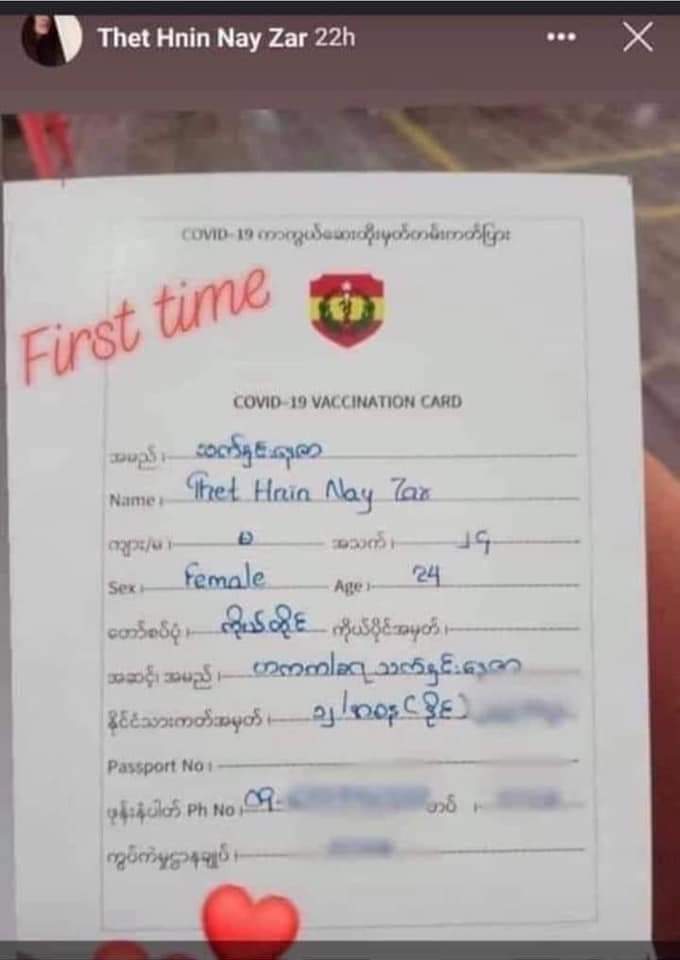 Thet Hnin Nay Zar 22h
COVID-19 ကာကွယ်ဆေးထိုးမှတ်တမ်းကတ်ပြား
First time
COVID-19 VACCINATION CARD
အမည်၊ သက်နှင်းနေဇာ
Name၊ Thet Hnin Nay Zar
ကျား/မ၊ မ အသက်၊ ၂၄
Sex၊ Female Age၊ 24
တော်စပ်ပုံ၊ ကိုယ်တိုင် ကိုယ်ပိုင်အမှတ်၊
အဆင့်၊ အမည်၊ သက်နှင်းနေဇာ
နိုင်ငံသားကတ်အမှတ်၊ (နိုင်)
Passport No၊
ဖုန်းနံပါတ် Ph No၊ 09- တပ်၊
ကွပ်ကဲမှုဌာနချုပ်၊